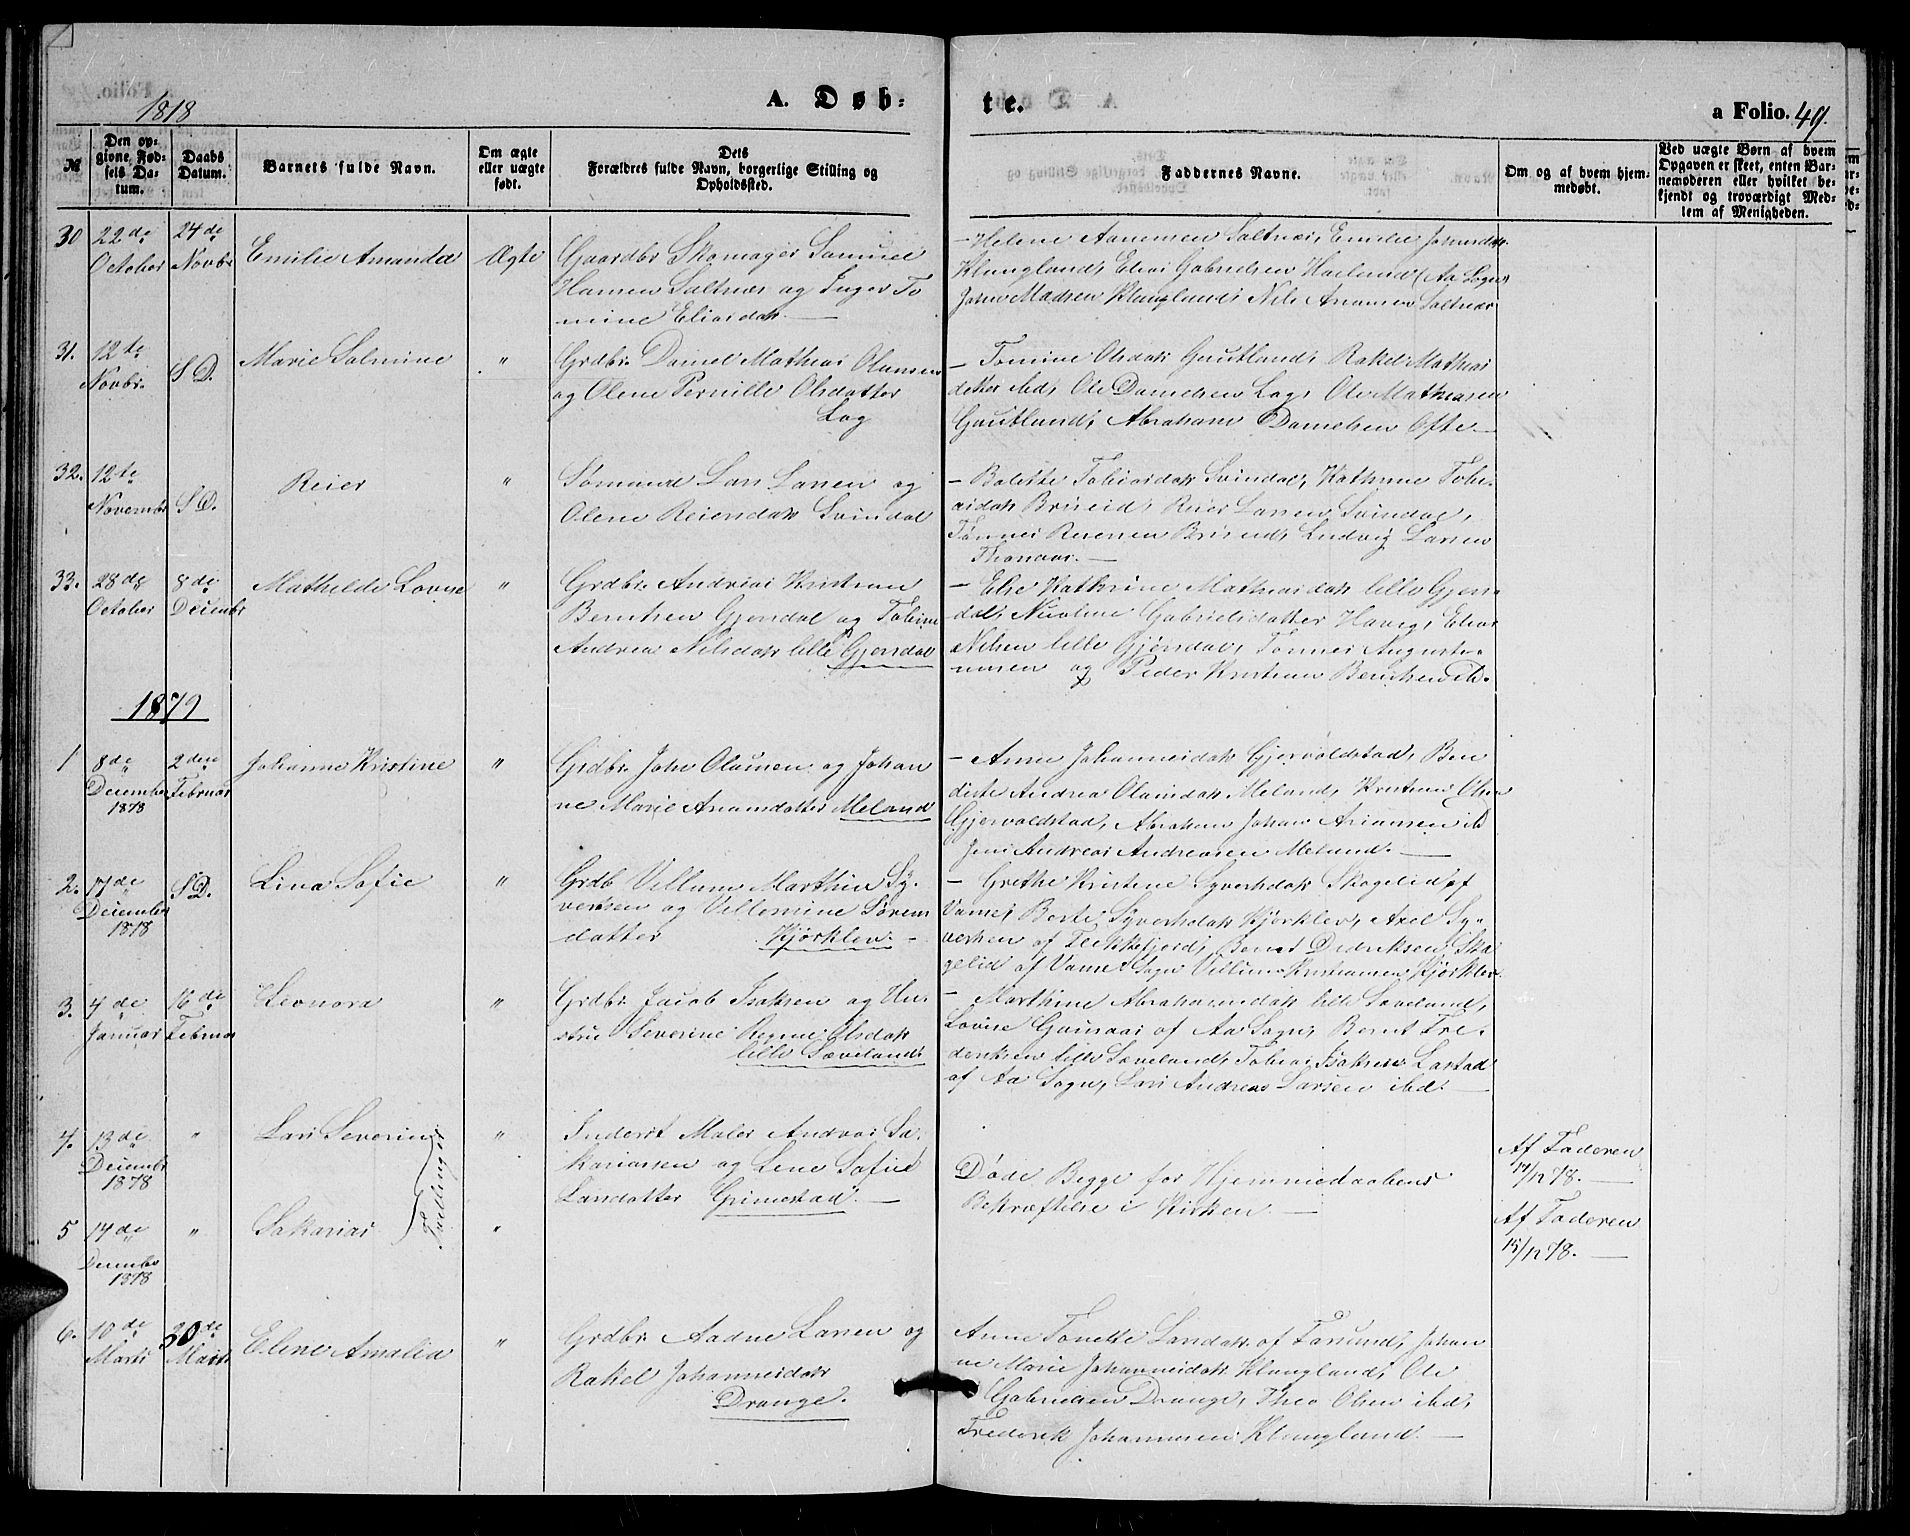 1878
A. Døb-
te.
a Folio. 49.
№
Den opgivne Fødsels Datum.
Daabs Datum.
Barnets fulde Navn.
Om ægte eller uægte født.
Dets Forældres fulde Navn, borgerlige Stilling og Opholdssted.
Faddernes Navne.
Om og af hvem hjemmedøbt.
Ved uægte Børn af hvem Opgaven er skeet, enten Barnemoderen eller hvilket bekjendt og troværdigt Medlem af Menigheden.
30 22de October 24de Novbr Emilie Amanda Ægte
Gaardbr Skomager Samuel
Hansen Saltnæs og Inger To
mine Eliasdatr
Helene Aanensen Saltnæs, Emilie
Klungland, Elias Gabrielsen Høiland (Aa Sogn)
John Madsen Klungland, Nils Saltnæs
31. 12te Novbr. S.D. Marie Salmine "
Grdbr. Daniel Mathias Olausen
og Olene Pernille Olsdatter
Log
Tomine Olsdatr Gautland, Rakel Mathias
detter ibd, Ole Danielsen Log, Ole Mathiasen
Gautland, Abraham Danielsen Ofte
32. 12te Novembr S.D. Reier "
Lars Larsen og
Olene Reiersdatr Svindal
Bolette Tobiasdatr Svindal, Kathrine Tobi
asdatr Briseid, Reier Larsen Svindal,
Tønnes Reiersen Briseid, Ludvig Larsen
33. 28de October 8de Decembr Mathilde Lovise "
Grdbr. Andreas Kristian
Berntsen Gjendal og Tobine
Andrea Nilsdatr lille Gjendal
Else Kathrine Mathiasdatr lille Gjen
dal, Nicoline Gabrielsdatter Haveg, Elias
Nilsen lille Gjendal, Tønnes Augusti
nusen og Peder Kristian Berntsen ib.
1879
1 8de December 1878 2den Februar Johanne Kristine "
Grdbr. John Olausen og Johan
ne Marie Anansdatter Meland
Anne Johannesdatr Gjervoldstad, Ben
dicte Andrea Olausdatr Meland, Kristian Olsen
Gjervoldstad, Abraham Johan Ariansen ib
Jens Andreas Andreasen Meland.
2. 17de December 1878 S.D. Lina Sofie "
Grdb. Villum Marthin Sy
vertsen og Villomine Sørens
datter Kjørklev.
Grethe Kristine Syvertsdatr Skagelid af
Vanse, Berte Syvertsdatr Kjørklev, Axel Sy
vertsen af Flekkefjord, Bernt Didriksen Ska
gelid af Vanse Sogn Villum Kristiansen Kjørklev
3. 4de Januar 16de Februar Leonora "
Grdbr. Jacob Isaksen og Hu
stru Severine Regine Olsdatr
lille Sæveland
Marthine Abrahamsdatr lille Sæveland,
Lovise Gaasaas af Aa Sogn, Bernt Fre
deriksen lille Sæveland, Tobias Isaksen Lastad
af Aa Sogn, Lars Andreas Larsen ibd.
4. 13de Decembr 1878 " Lars Severin "
Tvillinger
Inderst Maler Andreas Sa
kariassen og Lene Sofie
Larsdatter Grimestad.
Døde Begge før Hjemmedaabens
Bekræftelse i Kirken.
Af Faderen
14/12 78.
5 14de Decembr 1878 " Sakarias "
Af Faderen
15/12 78.
6. 10de Marts 30de Marts Elene Amalia "
Grdbr. Aadne Larsen og
Rakel Johannesdatr
Drange.
Anne Tonette Larsdatr af Farsund, Johan
ne Marie Johannesdatr Klungland, Ole
Gabrielsen Drange, Theo Olsen ibd,
Frederik Johannesen Klungland.